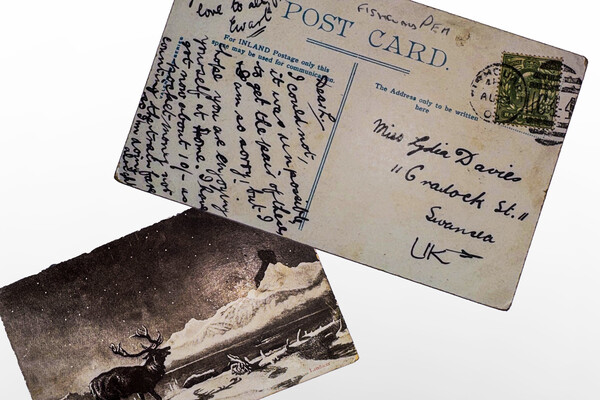 love to all
Ewart
FISHGUARD PEM
POST CARD.
For INLAND Postage only this
space may be used for communication.
The Address only to be written
here
Dear L.
I could not,
it was impossible
to get the pair of these
I am so sorry! but I
hope you are enjoying
yourself at Home. I have
got now about 10/- as
pocket money not
counting train fare
Miss Lydia Davies
11 Cradock St.
Swansea
UK